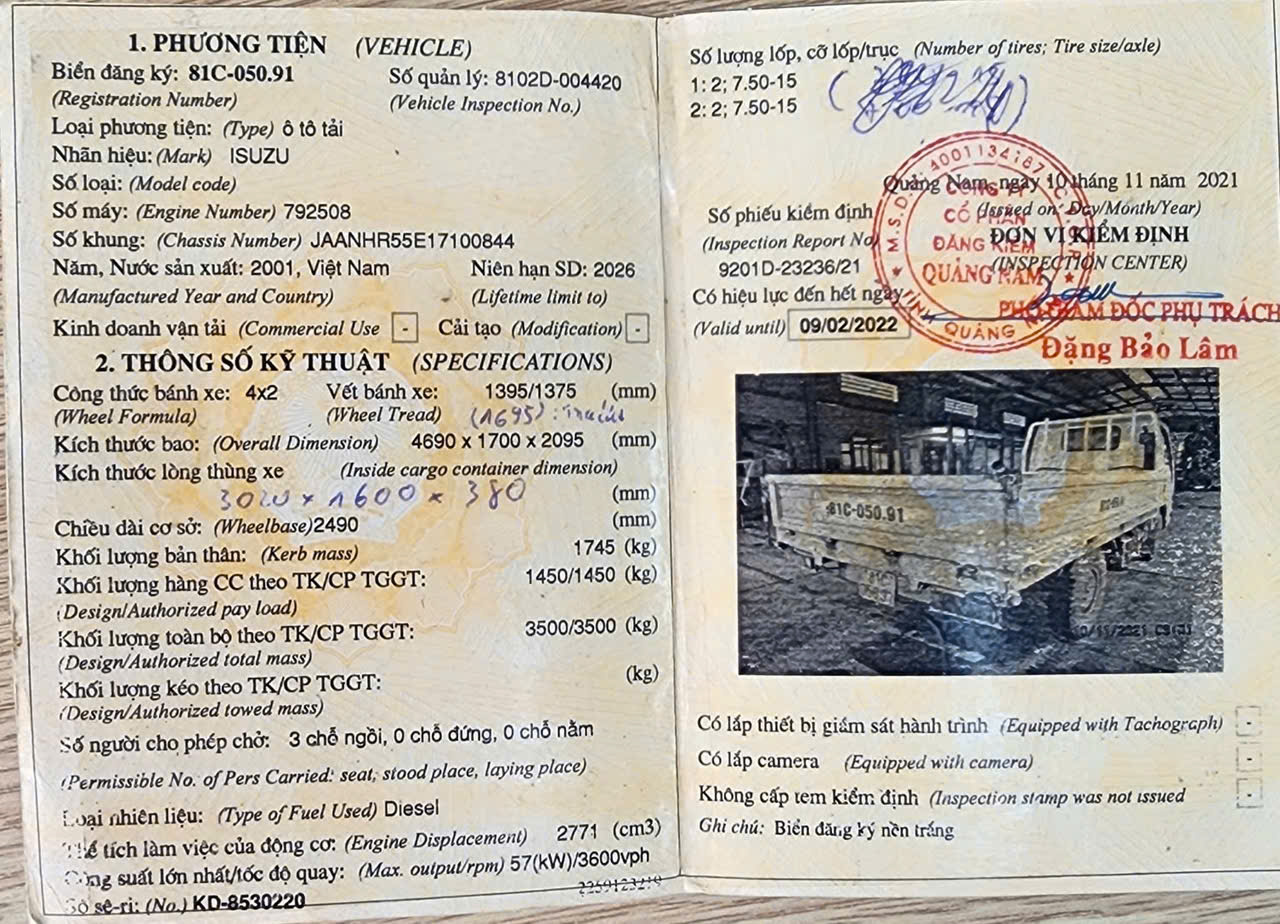 1. PHƯƠNG TIỆN (VEHICLE)
Biển đăng ký: 81C-050.91 Số quản lý: 8102D-004420
(Registration Number) (Vehicle Inspection No.)
Loại phương tiện: (Type) ô tô tải
Nhãn hiệu: (Mark) ISUZU
Số loại: (Model code)
Số máy: (Engine Number) 792508
Số khung: (Chassis Number) JAANHR55E17100844
Năm, Nước sản xuất: 2001, Việt Nam Niên hạn SD: 2026
(Manufactured Year and Country) (Lifetime limit to)
Kinh doanh vận tải (Commercial Use - Cải tạo (Modification) -
2. THÔNG SỐ KỸ THUẬT (SPECIFICATIONS)
Công thức bánh xe: 4x2 Vết bánh xe: 1395/1375 (mm)
(Wheel Formula) (Wheel Tread) (1695)
Kích thước bao: (Overall Dimension) 4690 x 1700 x 2095 (mm)
Kích thước lòng thùng xe (Inside cargo container dimension)
3020 x 1600 x 380 (mm)
Chiều dài cơ sở: (Wheelbase)2490 (mm)
Khối lượng bản thân: (Kerb mass) 1745 (kg)
Khối lượng hàng CC theo TK/CP TGGT: 1450/1450 (kg)
(Design/Authorized pay load)
Khối lượng toàn bộ theo TK/CP TGGT: 3500/3500 (kg)
(Design/Authorized total mass)
Khối lượng kéo theo TK/CP TGGT: (kg)
(Design/Authorized towed mass)
Số người cho phép chở: 3 chỗ ngồi, 0 chỗ đứng, 0 chỗ nằm
(Permissible No. of Pers Carried: seat, stood place, laying place)
Loại nhiên liệu: (Type of Fuel Used) Diesel
Thể tích làm việc của động cơ: (Engine Displacement) 2771 (cm3)
Công suất lớn nhất/tốc độ quay: (Max. output/rpm) 57(kW)/3600vph
Số sê-ri: (No.) KD-8530220
Số lượng lốp, cỡ lốp/trục (Number of tires; Tire size/axle)
1: 2; 7.50-15
2: 2; 7.50-15
Quảng Nam, ngày 10 tháng 11 năm 2021
(Issued on: Day/Month/Year)
Số phiếu kiểm định ĐƠN VỊ KIỂM ĐỊNH
(Inspection Report No) (INSPECTION CENTER)
9201D-23236/21
Có hiệu lực đến hết ngày
(Valid until) 09/02/2022
M.S.D. 4001134187
CÔNG TY
CỔ PHẦN
ĐĂNG KIỂM
QUẢNG NAM
TỈNH QUẢNG NAM
PHÓ GIÁM ĐỐC PHỤ TRÁCH
Đặng Bảo Lâm
81C-050.91
10/11/2021
Có lắp thiết bị giám sát hành trình (Equipped with Tachograph) -
Có lắp camera (Equipped with camera) -
Không cấp tem kiểm định (Inspection stamp was not issued -
Ghi chú: Biển đăng ký nền trắng